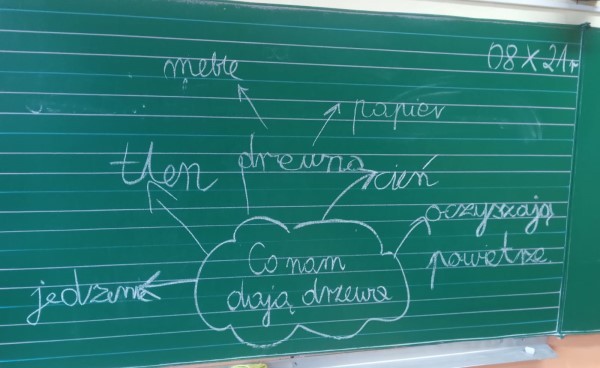 08 X 21r
meble
papier
drewna
tlen
cień
oczyszczają
powietrze
Co nam
dają drzewa
jedzenie